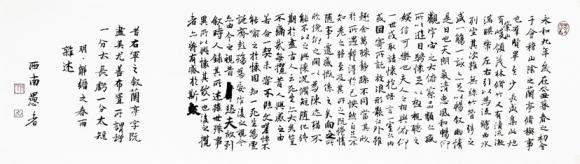 永和九年歲在癸丑暮春之初會
于會稽山陰之蘭亭脩稧事
也群賢畢至少長咸集此地
有崇山峻領茂林脩竹又有清流激
湍暎帶左右引以為流觴曲水
列坐其次雖無絲竹管弦之
盛一觴一詠亦足以暢敘幽情
是日也天朗氣清惠風和暢仰
觀宇宙之大俯察品類之盛
所以遊目騁懷足以極視聽之
娛信可樂也夫人之相與俯仰
一世或取諸懷抱悟言一室之內
或因寄所託放浪形骸之外雖
趣舍萬殊靜躁不同當其欣
於所遇蹔得於己快然自足不
知老之將至及其所之既惓情
隨事遷感慨係之矣向之所
欣俛仰之閒以為陳迹猶不
能不以之興懷況脩短隨化終
期於盡古人云死生亦大矣豈
不痛哉每攬昔人興感之由
若合一契未嘗不臨文嗟悼不
能喻之於懷固知一死生為虛
誕齊彭殤為妄作後之視今
亦由今之視昔悲夫故列
敘時人錄其所述雖世殊事
異所以興懷其致一也後之攬
者亦將有感於斯文
昔右軍之敘蘭亭字既
盡美尤善布置所謂增
一分太長虧一分太短
明·解縉之春雨
雜述
西南愚者